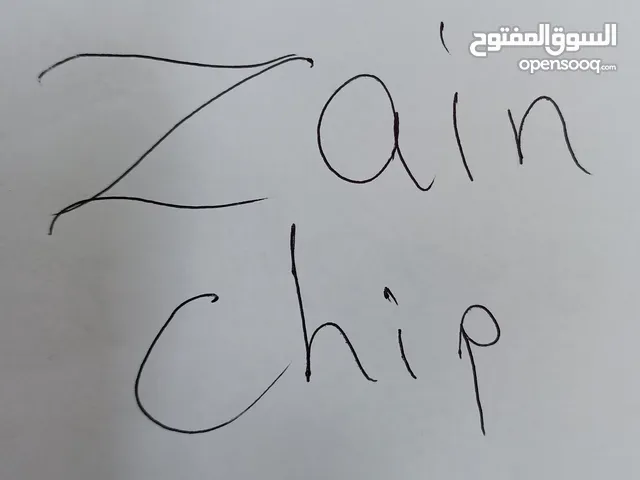 السوق المفتوح
opensooq.com
Zain
chip